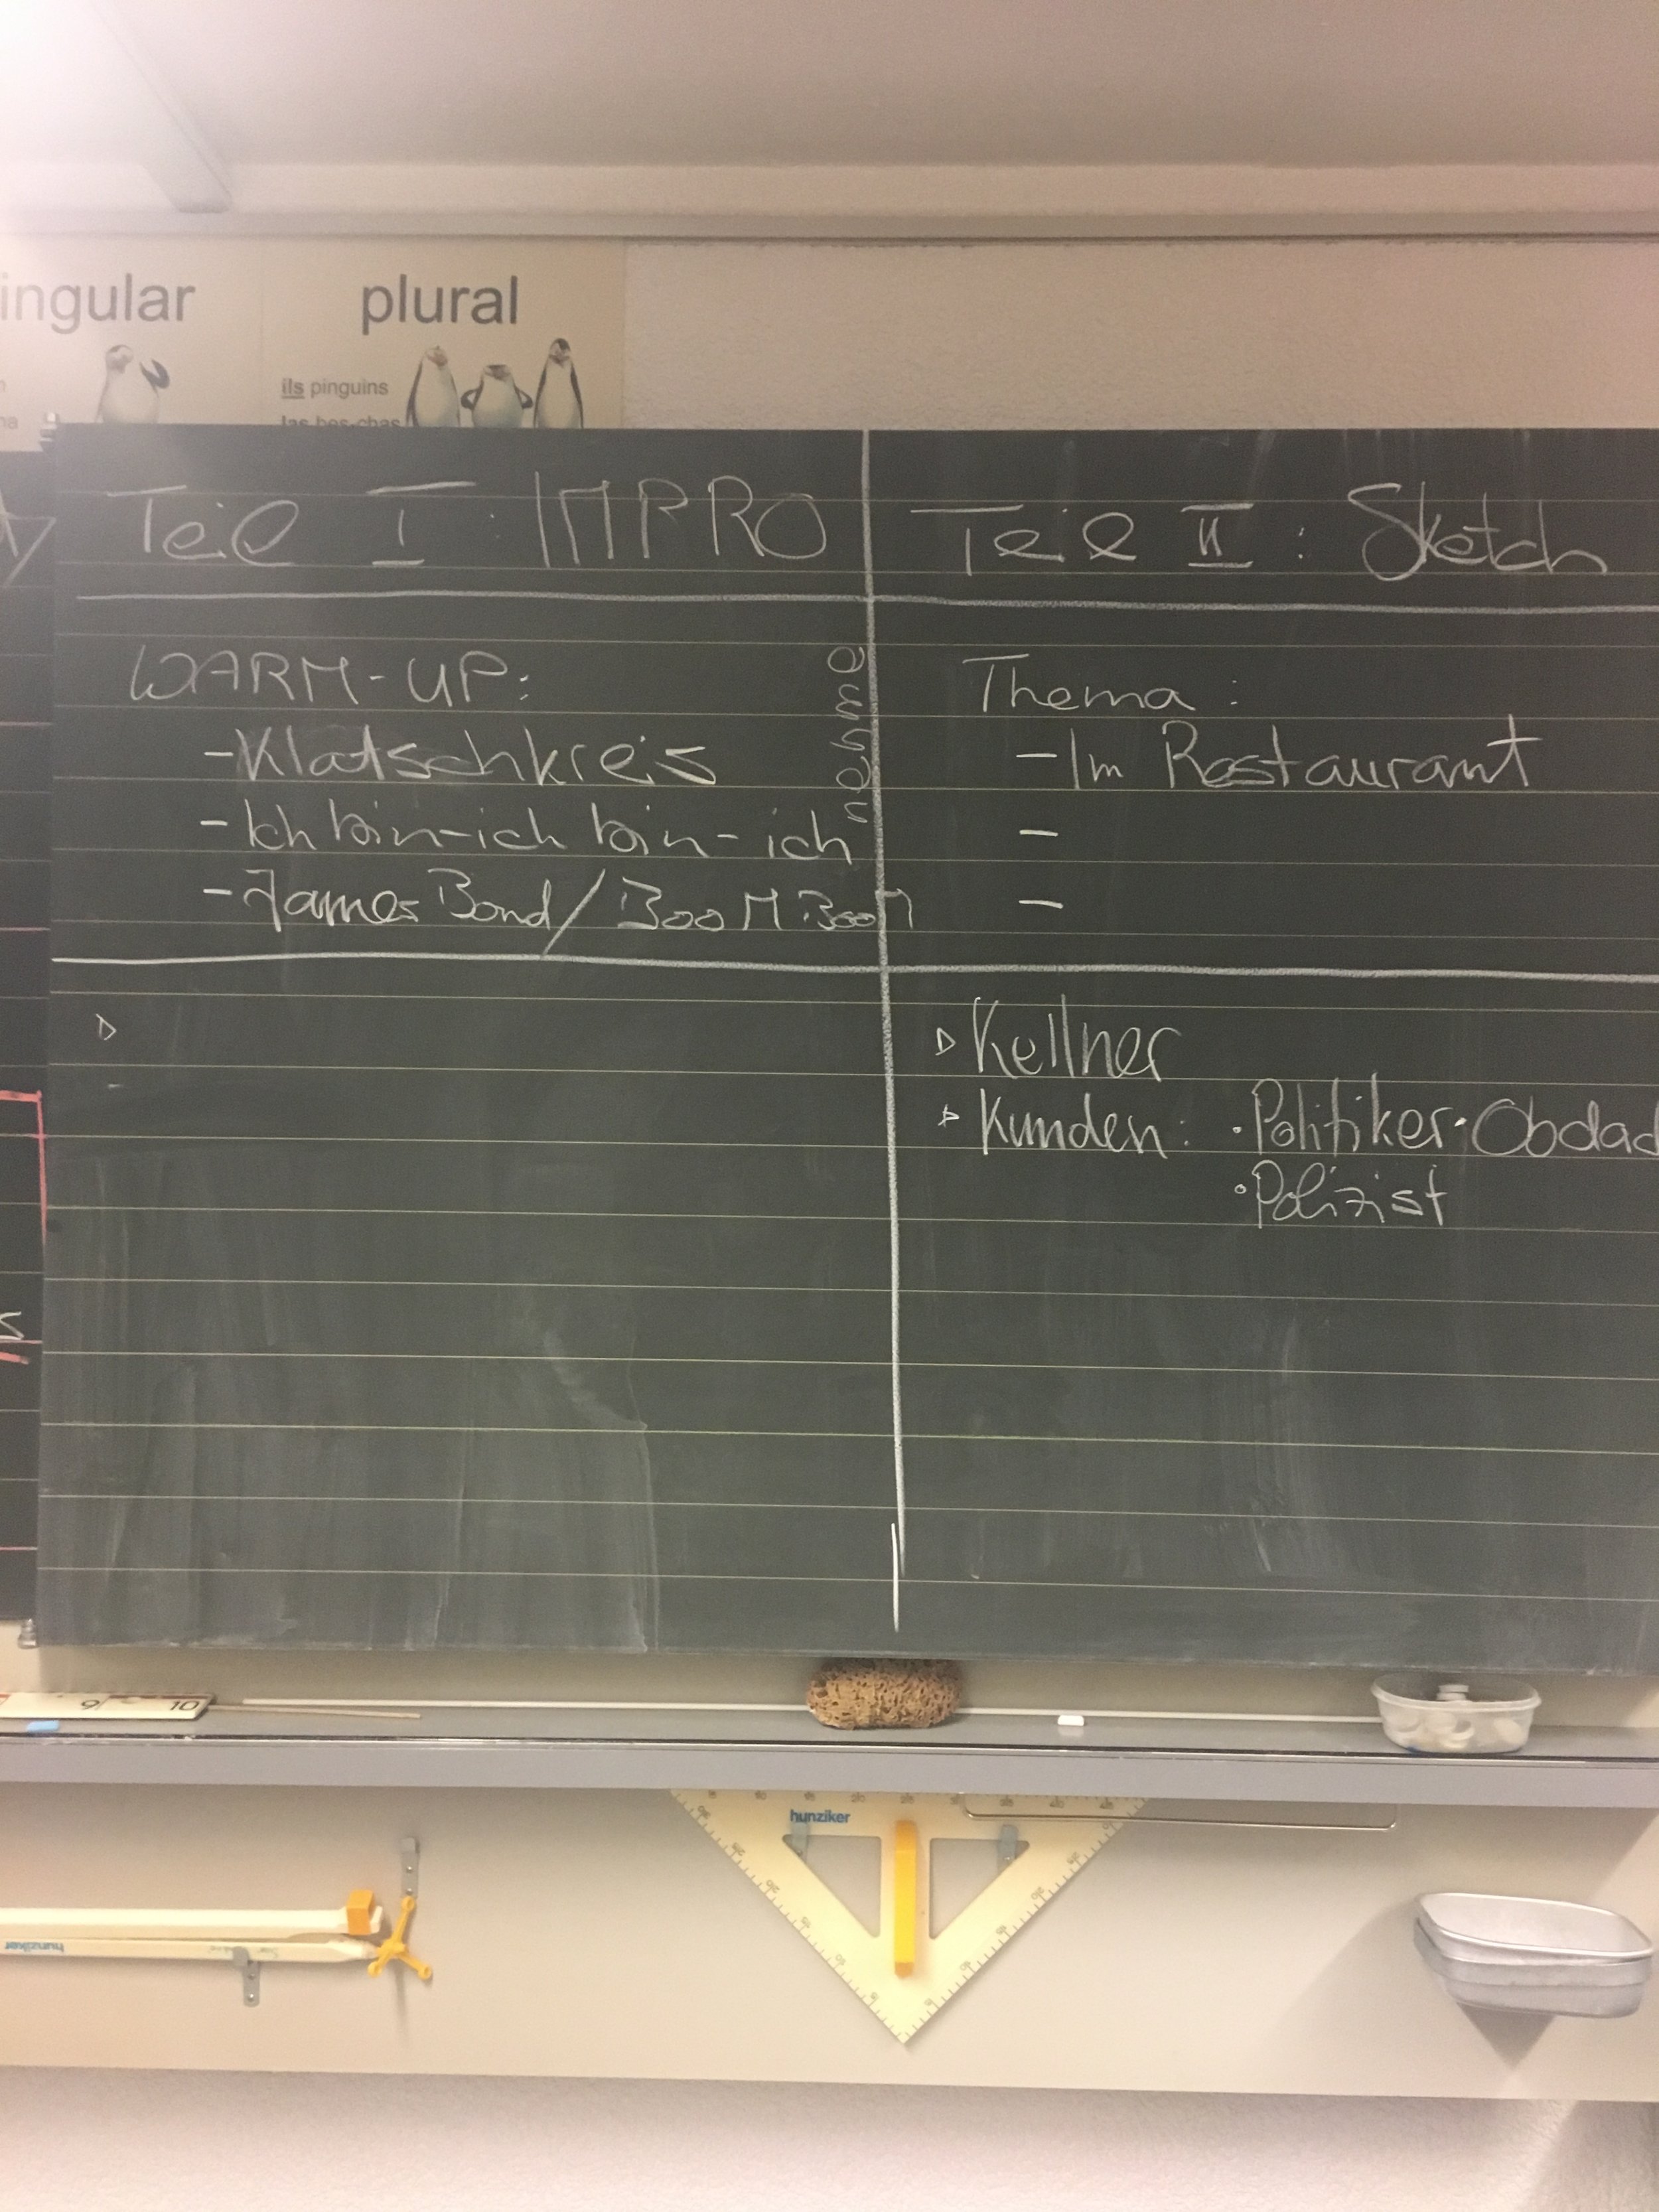 ingular
plural
ils pinguins
las bos-chas
Teil I : IMPRO
WARM-UP:
-Klatschkreis
-Ich bin-ich bin-ich
-James Bond/BOOM BOOM
▷
Teil II : Sketch
Thema :
-Im Restaurant
-
-
▷ Kellner
▷ Kunden: ·Politiker ·Obdac
·Polizist
9 10
hunziker
hunziker